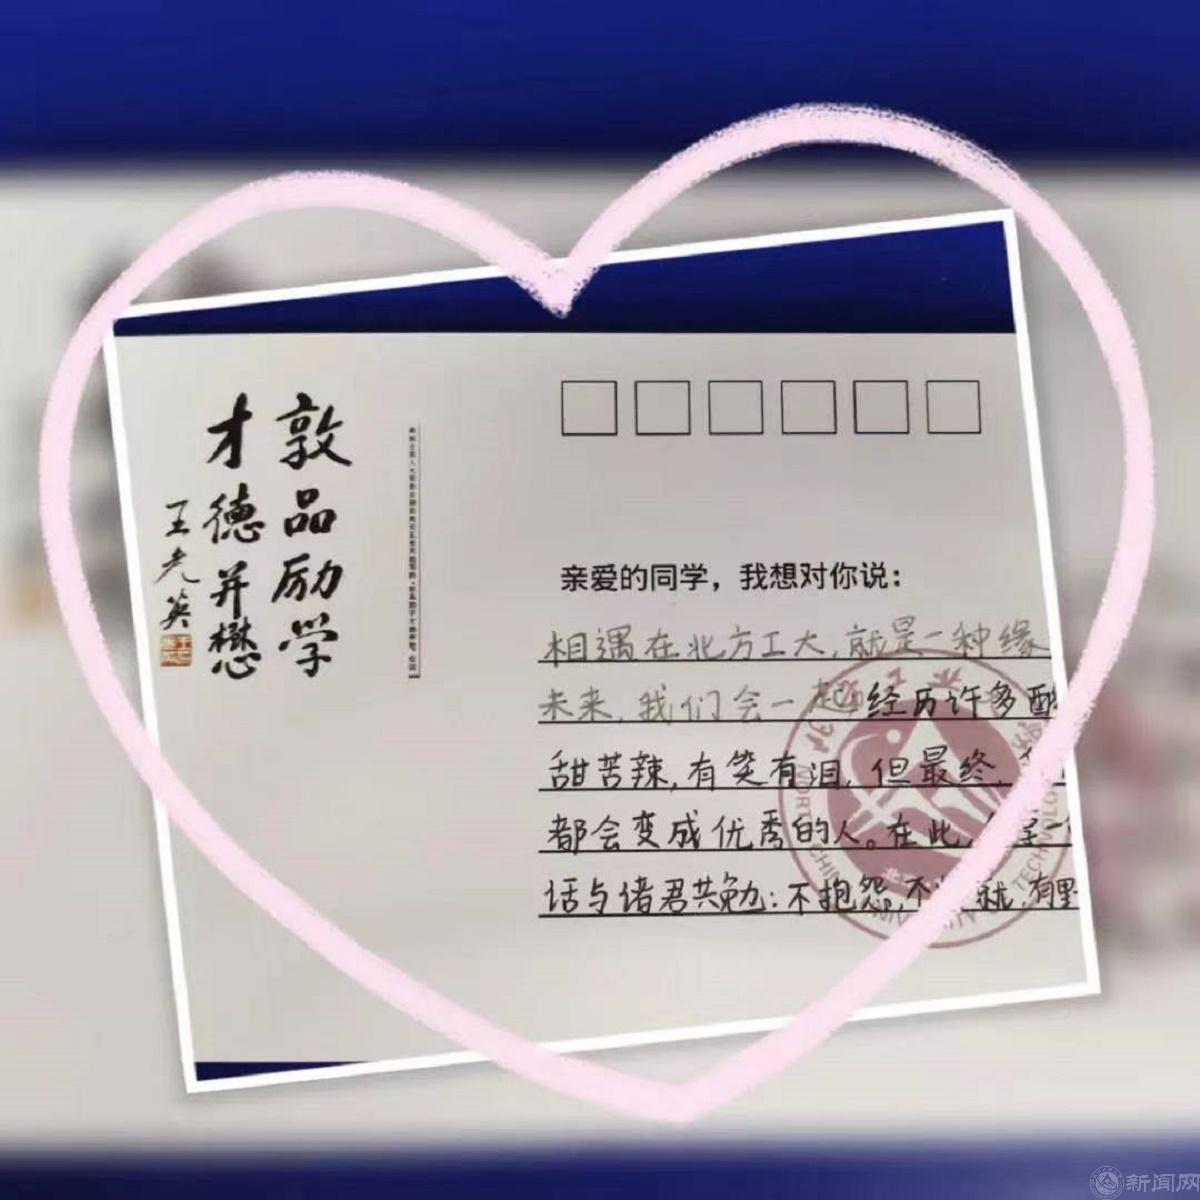 敦品励学
才德并懋
王光英
亲爱的同学，我想对你说：
相遇在北方工大，就是一种缘
未来，我们会一起经历许多酸
甜苦辣，有笑有泪，但最终，
都会变成优秀的人。在此，
话与诸君共勉：不抱怨，不 就，有野
新闻网